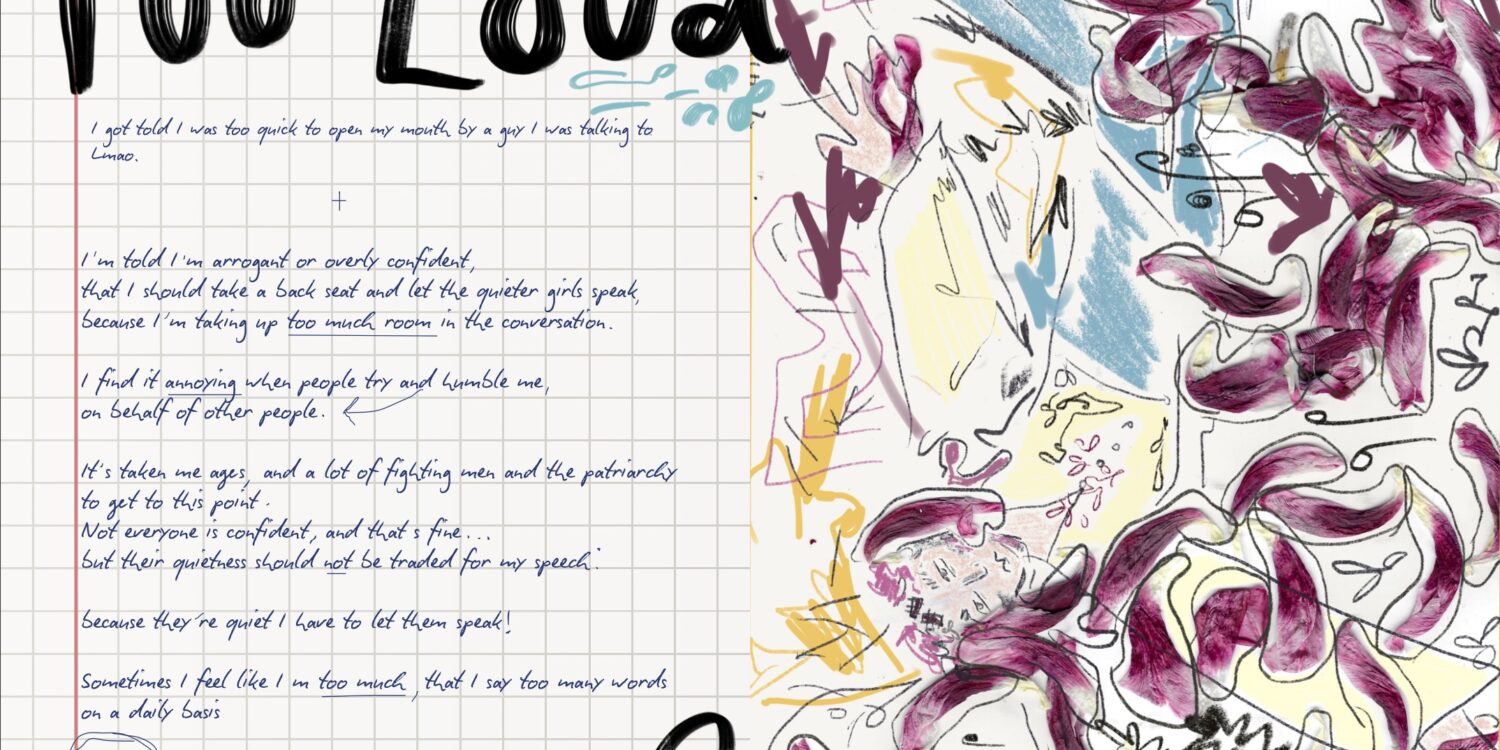 Too Loud
I got told I was too quick to open my mouth by a guy I was talking to
Lmao.
+
I'm told I'm arrogant or overly confident,
that I should take a back seat and let the quieter girls speak,
because I'm taking up too much room in the conversation.
I find it annoying when people try and humble me,
on behalf of other people.
It's taken me ages, and a lot of fighting men and the patriarchy
to get to this point.
Not everyone is confident, and that's fine...
but their quietness should not be traded for my speech:
because they're quiet I have to let them speak!
Sometimes I feel like I'm too much, that I say too many words
on a daily basis